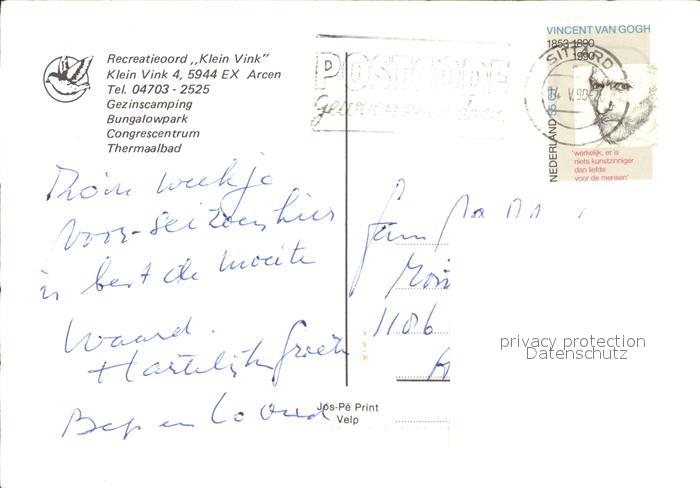 Recreatieoord ,,Klein Vink"
Klein Vink 4, 5944 EX Arcen
Tel. 04703 - 2525
Gezinscamping
Bungalowpark
Congrescentrum
Thermaalbad
POSTCODE
Gewoon even doen
VINCENT VAN GOGH
1853-1890
1990
SITTARD
V.90
NEDERLAND 55
'werkelijk, er is
niets kunstzinniger
dan liefde
voor de mensen'
weekje
voor-seizoen hier
is best de moeite
waard.
Hartelijk groeten
Bep en Co
Fam
1106
privacy protection
Datenschutz
Jos-Pé Print
Velp